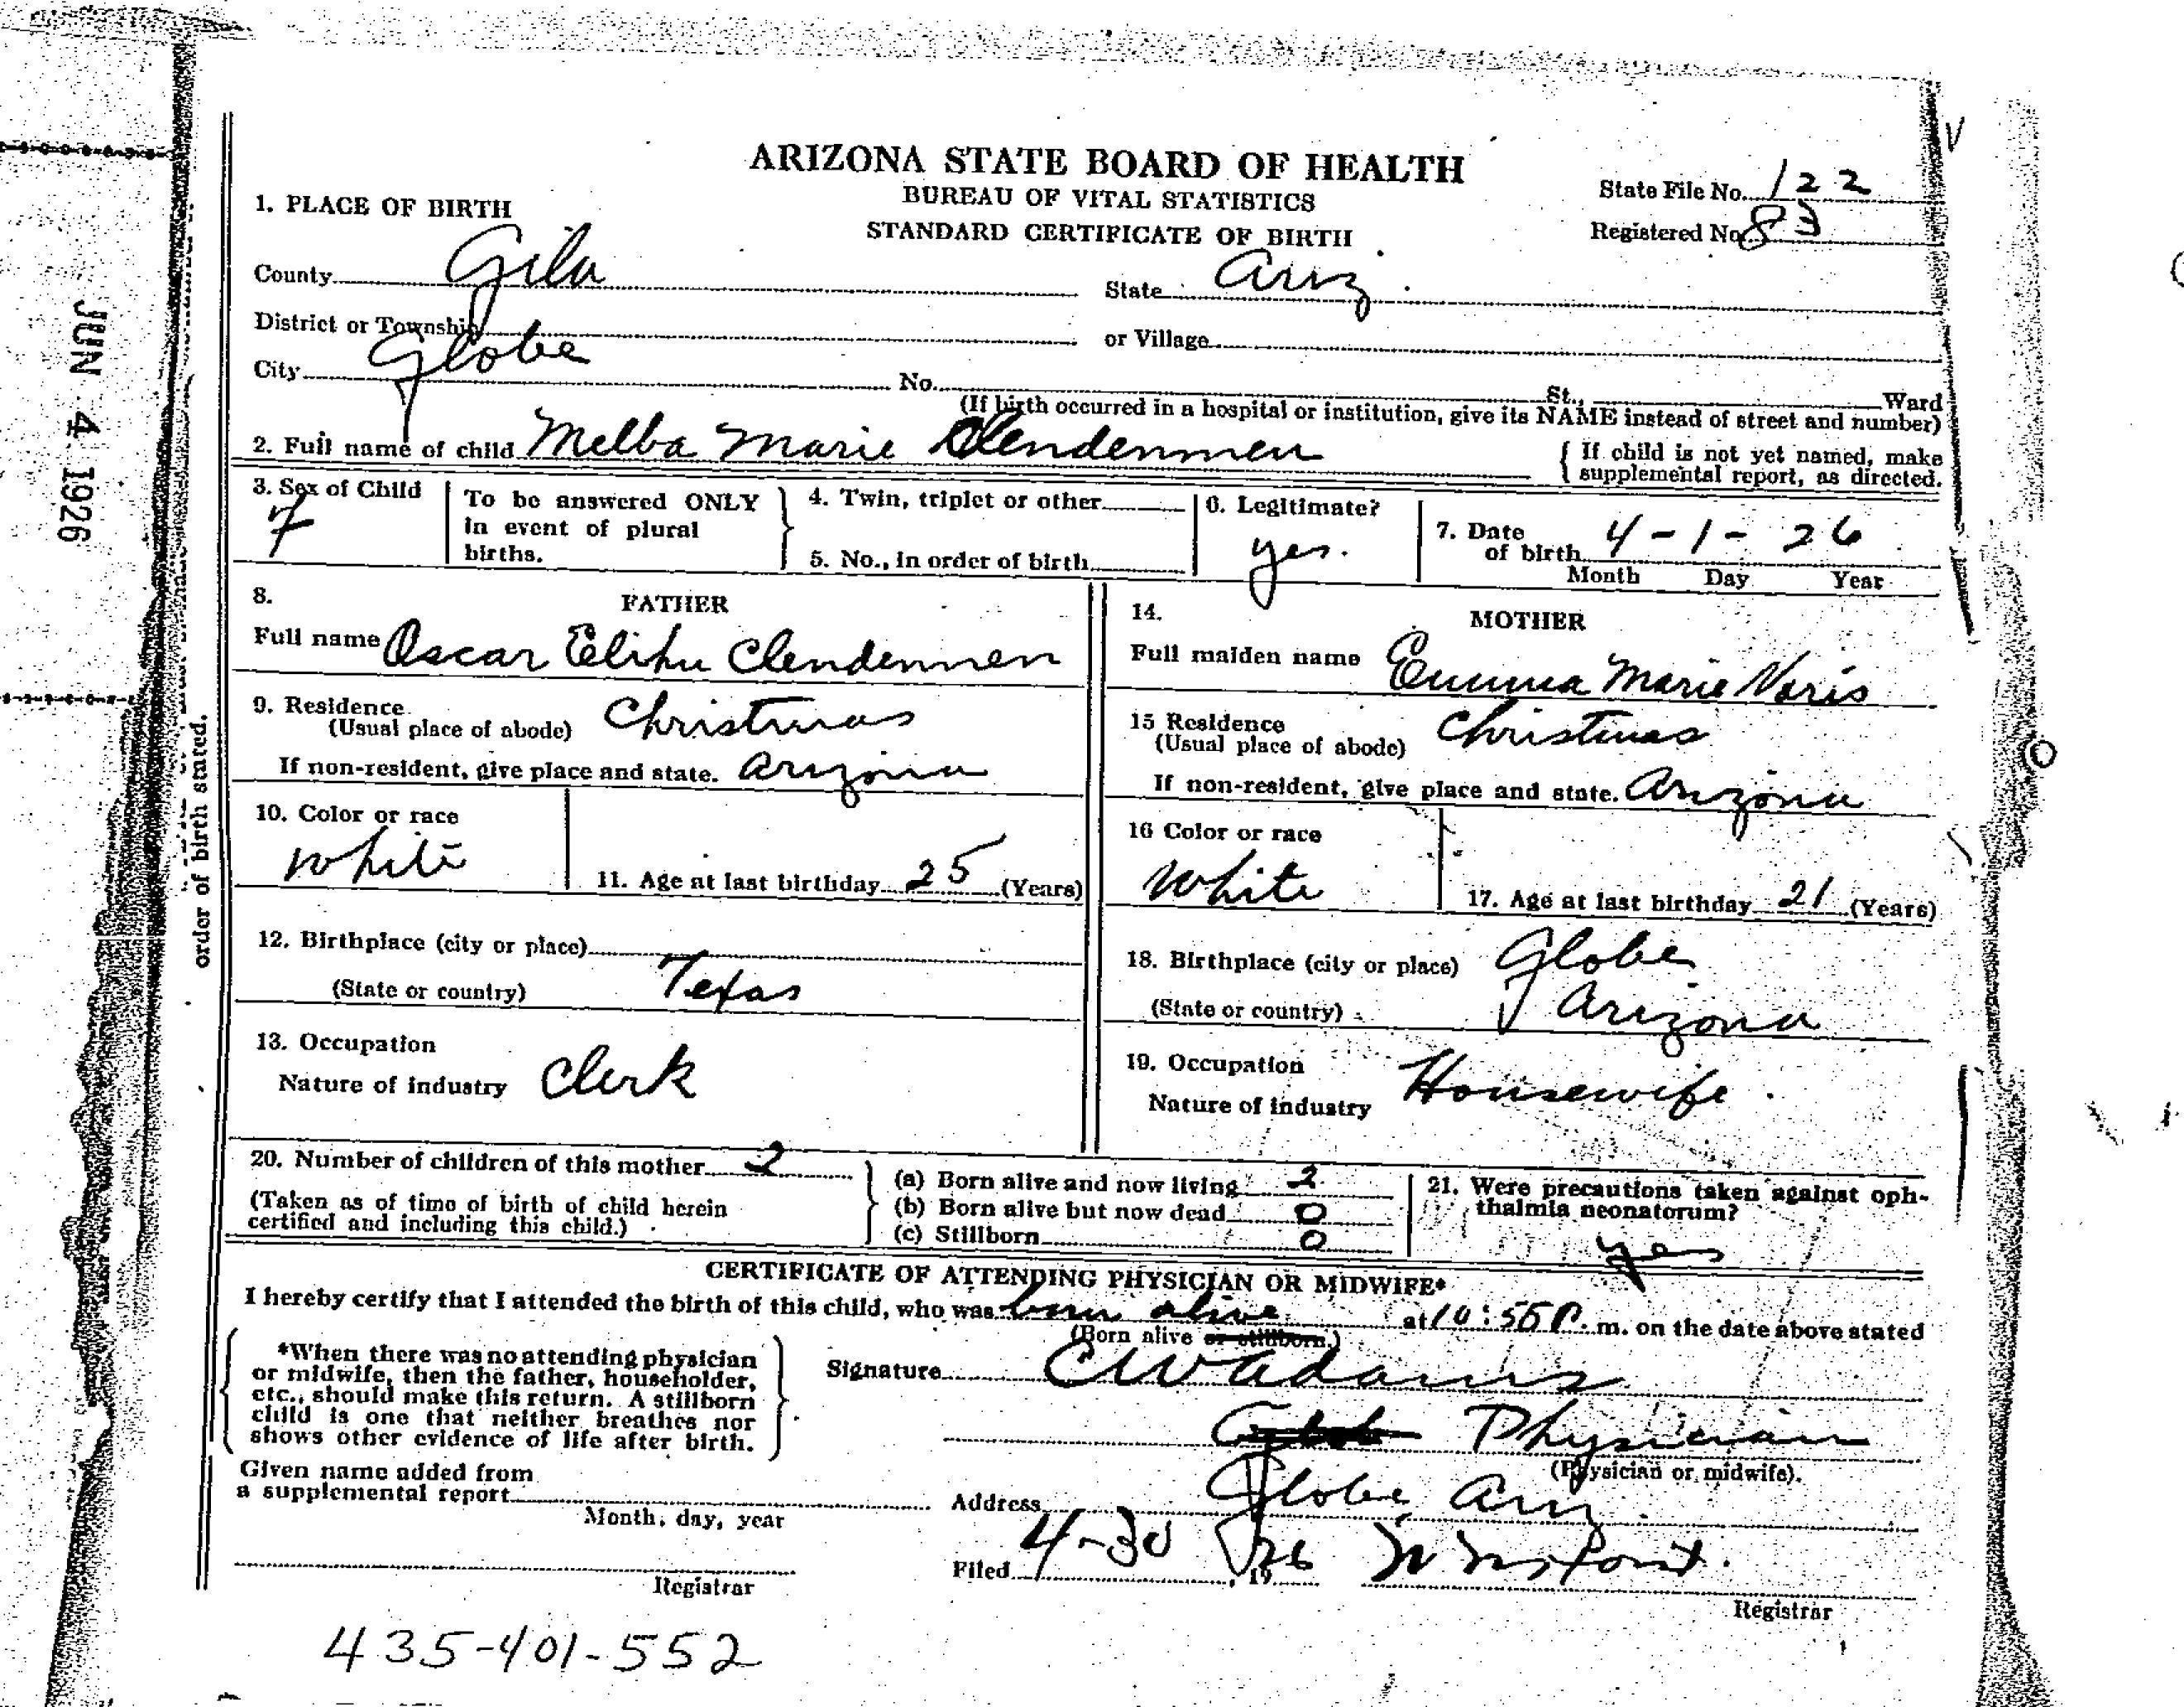 ARIZONA STATE BOARD OF HEALTH
BUREAU OF VITAL STATISTICS
STANDARD CERTIFICATE OF BIRTH
State File No. 122
Registered No. 83
1. PLACE OF BIRTH
County Gila State Ariz.
District or Township or Village
City Globe No. St., Ward
(If birth occurred in a hospital or institution, give its NAME instead of street and number)
2. Full name of child Melba Marie Clendennen
{ If child is not yet named, make
supplemental report, as directed.
3. Sex of Child
F
To be answered ONLY
in event of plural
births.
4. Twin, triplet or other
5. No., in order of birth
6. Legitimate?
yes.
7. Date
of birth 4 - 1 - 26
Month Day Year
8. FATHER
Full name Oscar Elihu Clendennen
9. Residence
(Usual place of abode) Christmas
If non-resident, give place and state. Arizona
10. Color or race
White
11. Age at last birthday 25 (Years)
12. Birthplace (city or place)
(State or country) Texas
13. Occupation
Nature of industry Clerk
14. MOTHER
Full maiden name Emma Marie Varis
15 Residence
(Usual place of abode) Christmas
If non-resident, give place and state. Arizona
16 Color or race
White
17. Age at last birthday 21 (Years)
18. Birthplace (city or place) Globe
(State or country) Arizona
19. Occupation
Nature of industry Housewife.
20. Number of children of this mother 2
(Taken as of time of birth of child herein
certified and including this child.)
(a) Born alive and now living 2
(b) Born alive but now dead 0
(c) Stillborn 0
21. Were precautions taken against oph-
thalmia neonatorum?
yes
CERTIFICATE OF ATTENDING PHYSICIAN OR MIDWIFE*
I hereby certify that I attended the birth of this child, who was born alive at 10:55 P. m. on the date above stated
(Born alive or stillborn.)
*When there was no attending physician
or midwife, then the father, householder,
etc., should make this return. A stillborn
child is one that neither breathes nor
shows other evidence of life after birth.
Signature CW Adams
Physician
(Physician or midwife).
Given name added from
a supplemental report
Month, day, year
Address Globe Ariz
Filed 4-30, 1926
Registrar
Registrar
435-401-552
JUN 4 1926
order of birth stated.